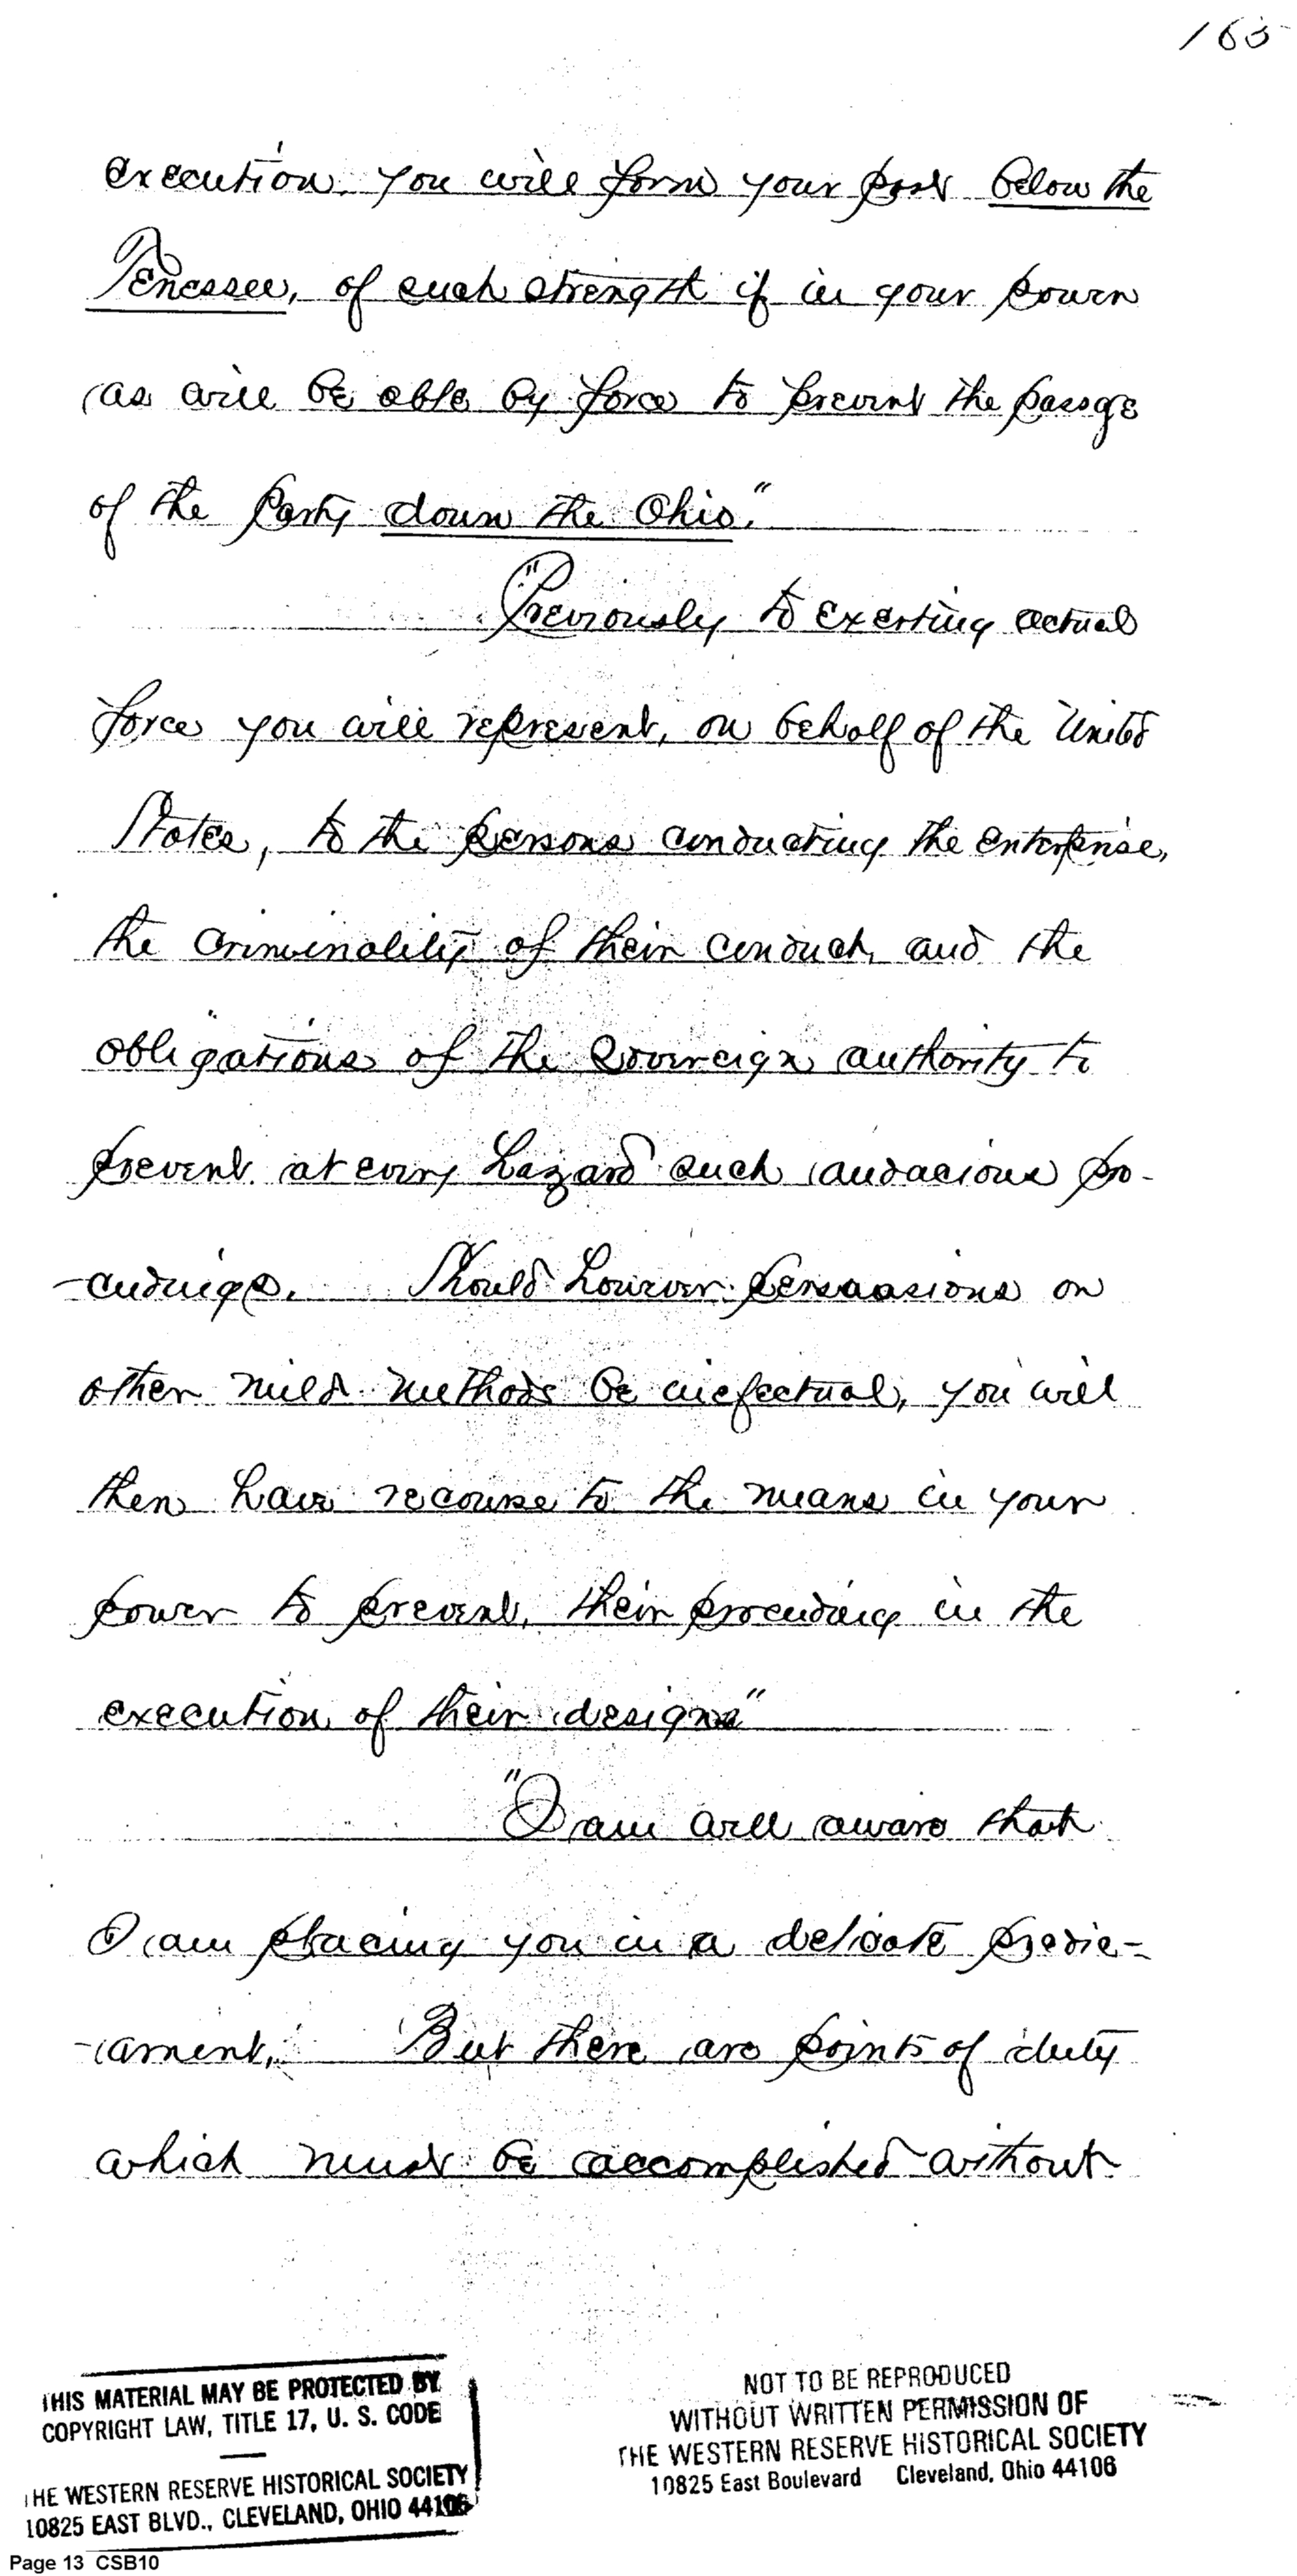 165
execution. you will form your post below the
Tenessee, of such strength if in your power
as will be able by force to prevent the passage
of the Party down the Ohio."
"Previously to exerting actual
force you will represent, on behalf of the United
States, to the persons conducting the enterprise,
the criminality of their conduct, and the
obligations of the Sovereign authority to
prevent at every hazard such audacious pro-
-ceedings. Should however persuasions or
other mild methods be inefectual, you will
then have recourse to the means in your
power to prevent, their proceeding in the
execution of their designs"
"I am well aware that
I am placing you in a delicate predic-
-ament. But there are points of duty
which must be accomplished without
THIS MATERIAL MAY BE PROTECTED BY
COPYRIGHT LAW, TITLE 17, U. S. CODE
THE WESTERN RESERVE HISTORICAL SOCIETY
10825 EAST BLVD., CLEVELAND, OHIO 44106
NOT TO BE REPRODUCED
WITHOUT WRITTEN PERMISSION OF
THE WESTERN RESERVE HISTORICAL SOCIETY
10825 East Boulevard Cleveland, Ohio 44106
Page 13 CSB10